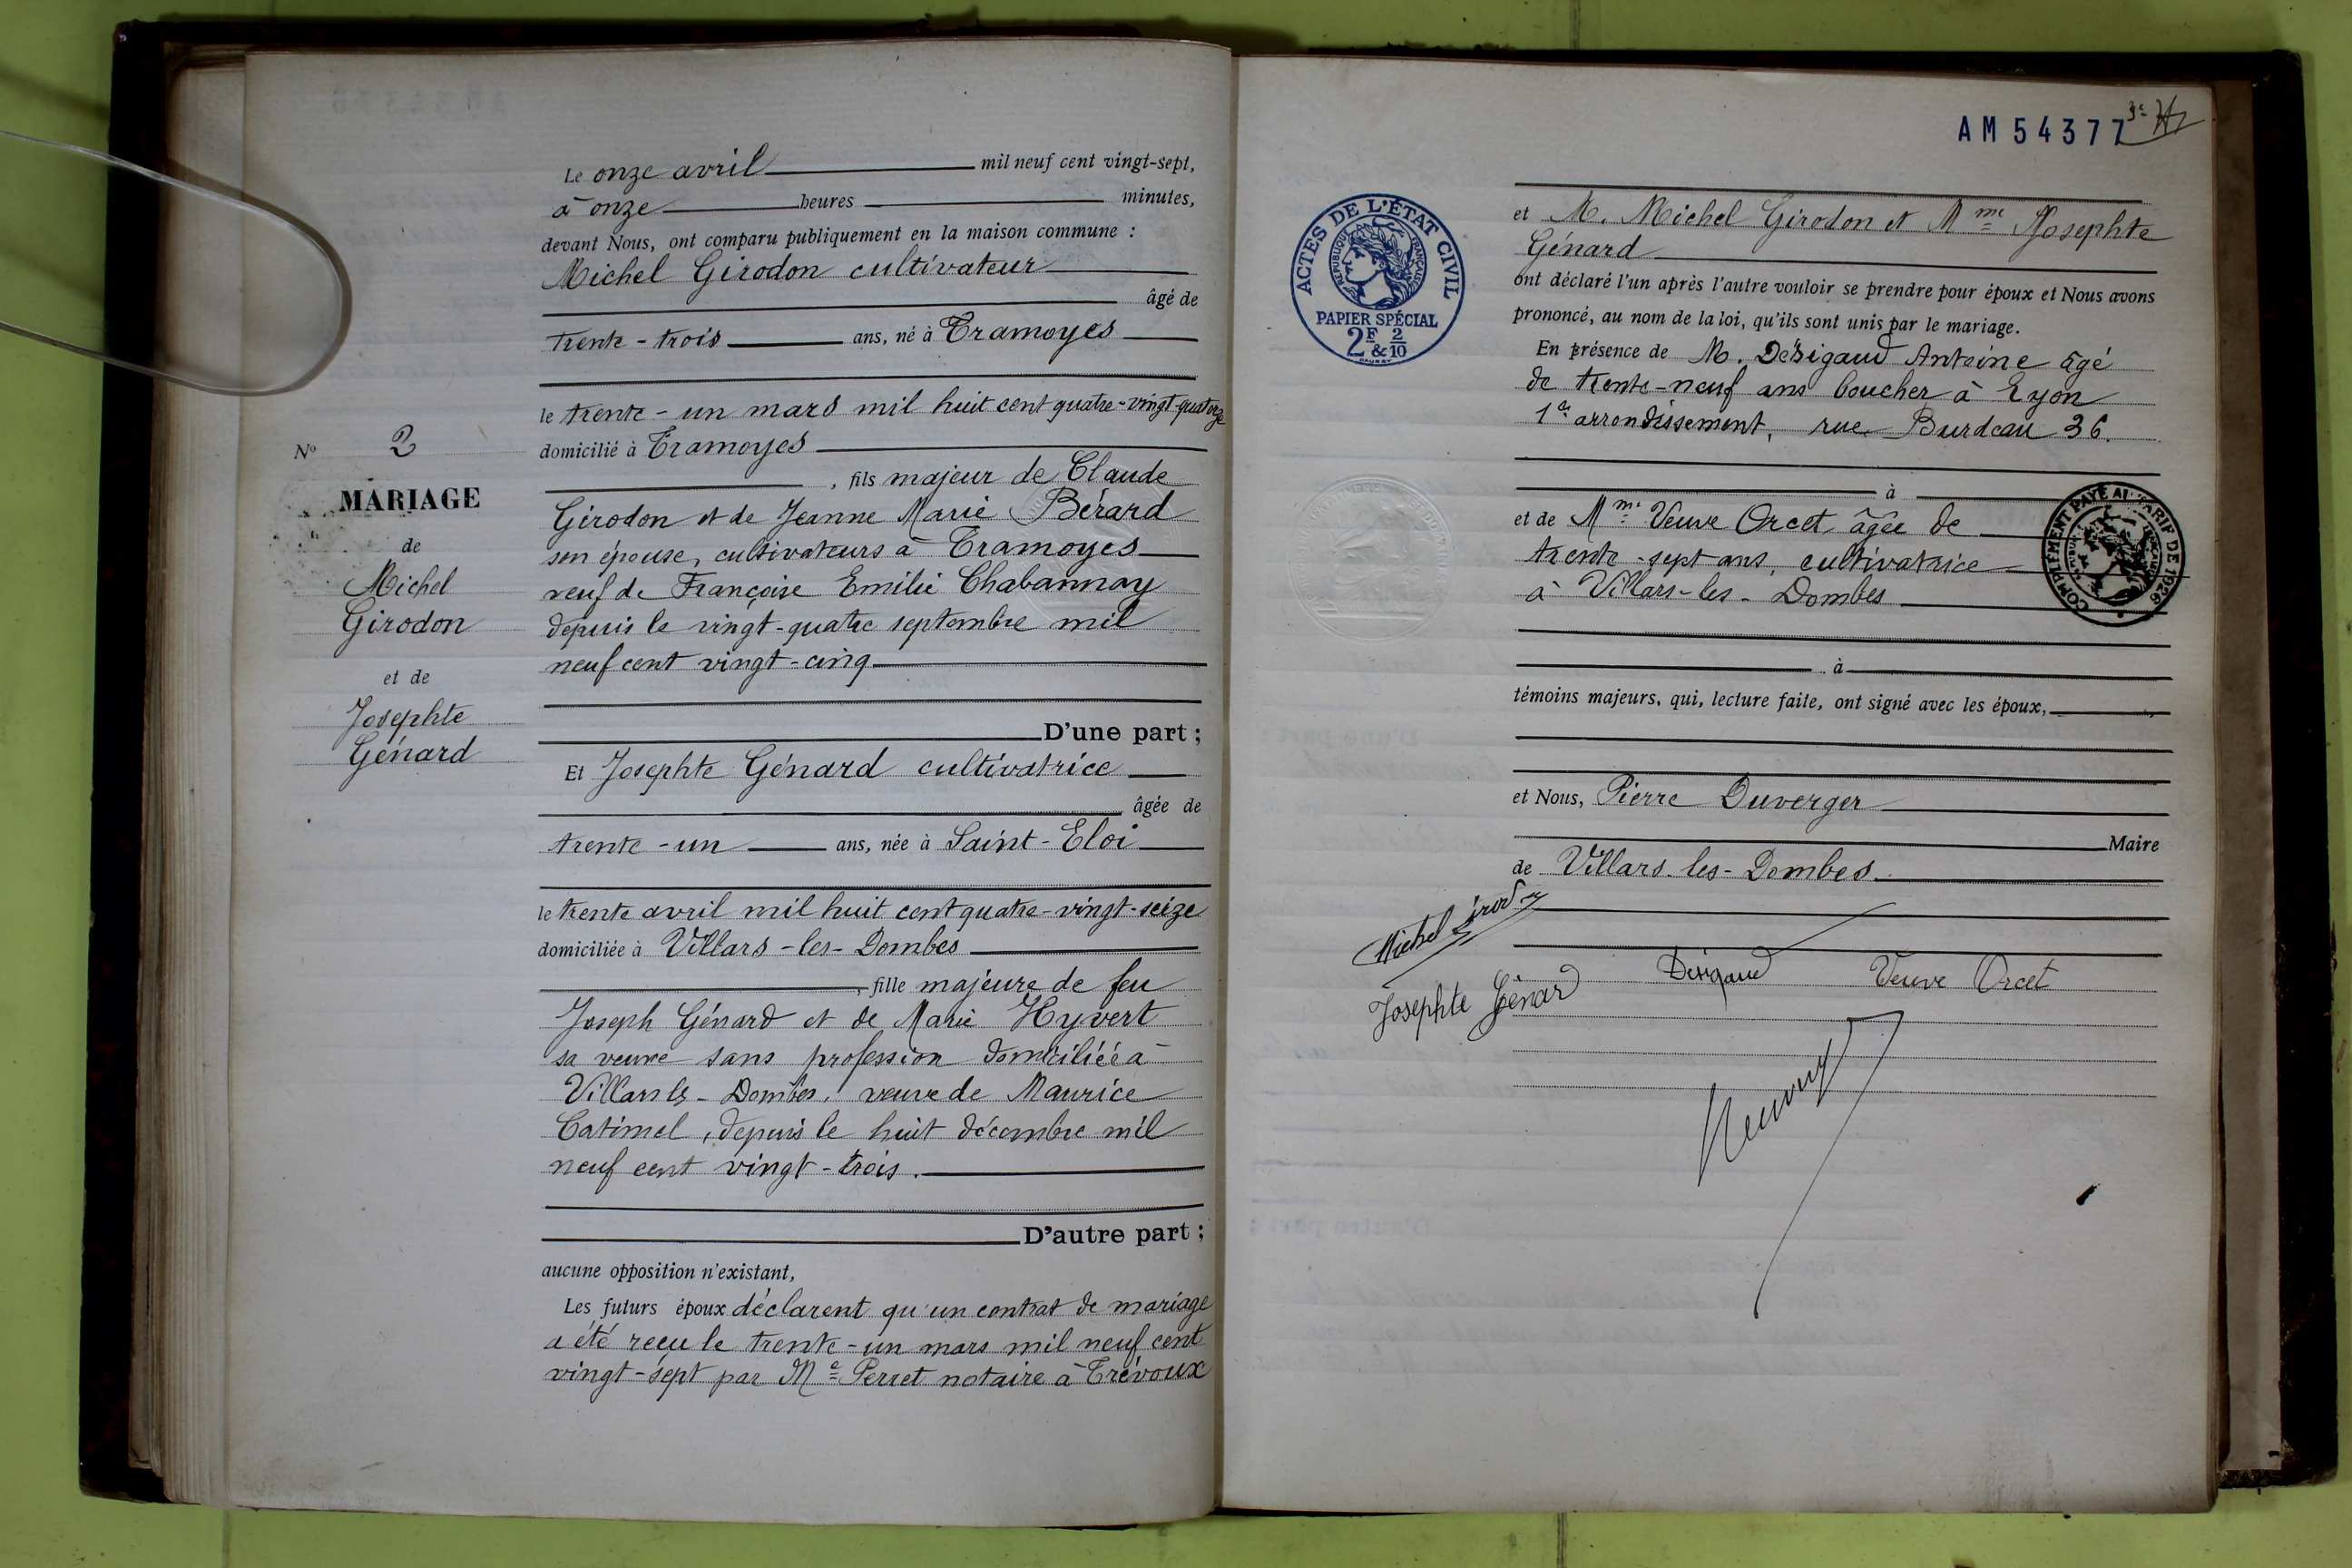 Le onze avril mil neuf cent vingt-sept,
à onze heures minutes,
devant Nous, ont comparu publiquement en la maison commune :
Michel Girodon cultivateur
âgé de
trente-trois ans, né à Tramoyes
le trente-un mars mil huit cent quatre-vingt quatorze
domicilié à Tramoyes
, fils majeur de Claude
Girodon et de Jeanne Marie Bérard
son épouse, cultivateurs à Tramoyes
veuf de Françoise Emilie Chabannay
depuis le vingt-quatre septembre mil
neuf cent vingt-cinq
D'une part ;
Et Josephte Génard cultivatrice
âgée de
trente-un ans, née à Saint-Eloi
le trente avril mil huit cent quatre-vingt-seize
domiciliée à Villars-les-Dombes
, fille majeure de feu
Joseph Génard et de Marie Hyvert
sa veuve sans profession domiciliée à
Villars les-Dombes, veuve de Maurice
Catimel, depuis le huit décembre mil
neuf cent vingt-trois.
D'autre part ;
aucune opposition n'existant,
Les futurs époux déclarent qu'un contrat de mariage
a été reçu le trente-un mars mil neuf cent
vingt-sept par Me Perret notaire à Trévoux
No 2
MARIAGE
de
Michel
Girodon
et de
Josephte
Génard
AM54377
ACTES DE L'ÉTAT CIVIL
RÉPUBLIQUE FRANÇAISE
PAPIER SPÉCIAL
2F & 2/10
et M. Michel Girodon et Mme Josephte
Génard
ont déclaré l'un après l'autre vouloir se prendre pour époux et Nous avons
prononcé, au nom de la loi, qu'ils sont unis par le mariage.
En présence de M. Désigaud Antoine âgé
de trente-neuf ans boucher à Lyon
1er arrondissement, rue Burdeau 36.
à
et de Mme Veuve Orcet âgée de
trente-sept ans, cultivatrice
à Villars-les-Dombes
COMPLÉMENT PAYÉ AU TARIF DE 1926
à
témoins majeurs, qui, lecture faite, ont signé avec les époux,
et Nous, Pierre Duverger
Maire
de Villars-les-Dombes.
Michel Girodon
Josephte Génard
Désigaud
Veuve Orcet